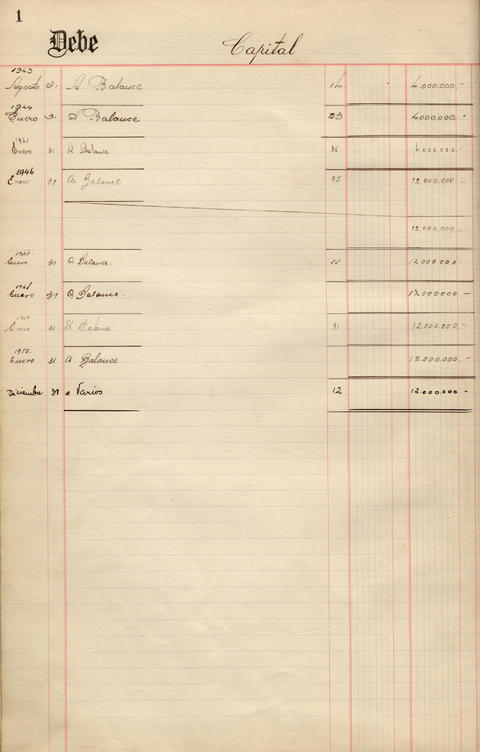 1
Debe Capital
1943
Agosto 31 A Balance 14 4.000.000.-
1944
Enero 31 A Balance 23 4.000.000 "
1945
Enero 31 A Balance 35 4.000.000.-
1946
Enero 31 A Balance 45 12.000.000 -
12.000.000 -
1947
Enero 31 A Balance. 55 12.000.000 -
1948
Enero 31 A Balance. 12.000.000 -
1949
31 A 81 12.000.000 -
1950.
Enero 31 A Balance 12.000.000.-
Diciembre 31 a Varios 12 12.000.000 -